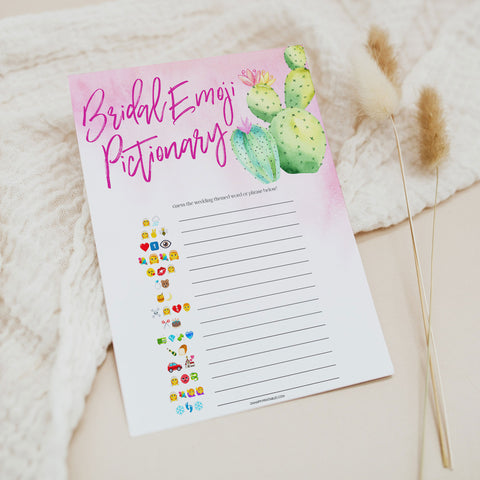 Bridal Emoji
Pictionary
Guess the wedding themed word or phrase below!